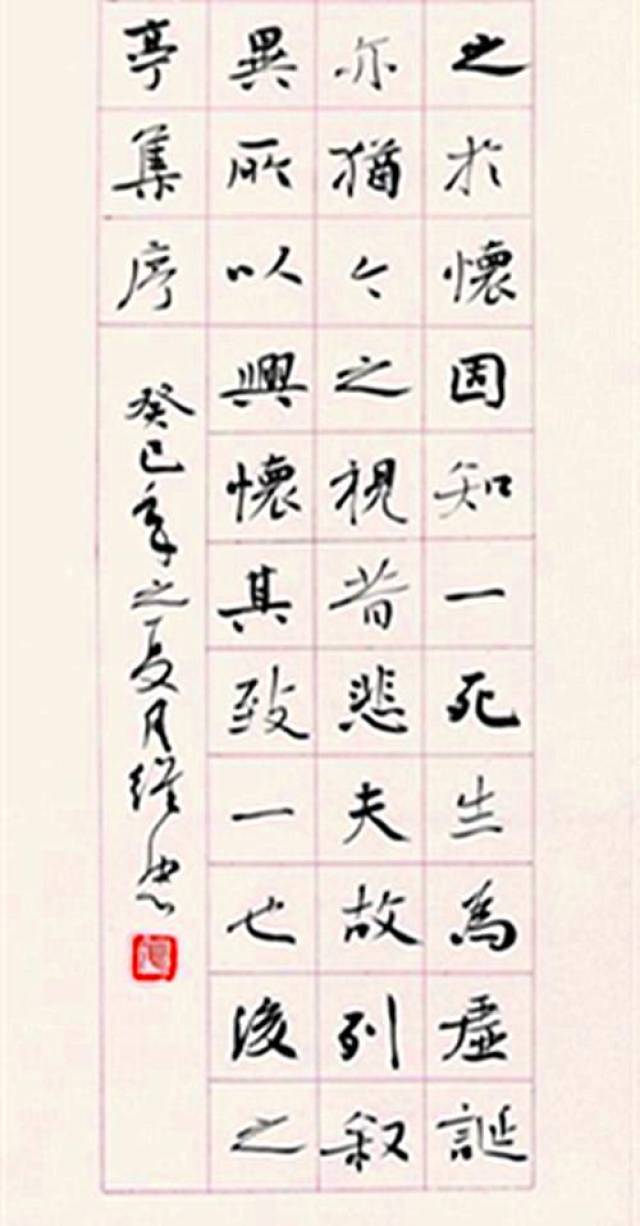 之於懷因知一死生為虛誕
亦猶今之視昔悲夫故列叙
異所以興懷其致一也後之
亭集序
癸巳年之夏月忠